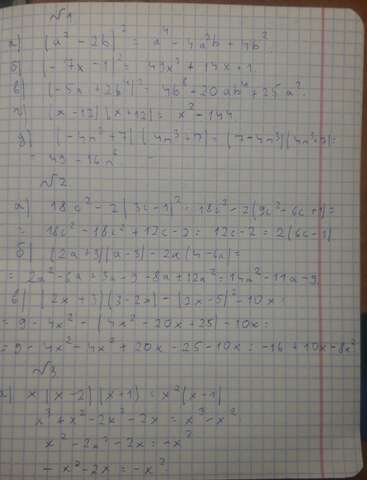 №1
а) (a² - 2b)² = a⁴ - 4a²b + 4b²
б) (-7x - 1)² = 49x² + 14x + 1
в) (-5a + 2b⁴)² = 4b⁸ - 20ab⁴ + 25a²
г) (x - 12)(x + 12) = x² - 144
д) (-4n³ + 7)(4n³ + 7) = (7 - 4n³)(4n³ + 7) =
= 49 - 16n⁶
№2
а) 18c² - 2(3c - 1)² = 18c² - 2(9c² - 6c + 1) =
= 18c² - 18c² + 12c - 2 = 12c - 2 = 2(6c - 1)
б) (2a + 3)(a - 3) - 2a(4 - 6a) =
= 2a² - 6a + 3a - 9 - 8a + 12a² = 14a² - 11a - 9
в) (2x + 3)(3 - 2x) - (2x - 5)² - 10x =
= 9 - 4x² - (4x² - 20x + 25) - 10x =
= 9 - 4x² - 4x² + 20x - 25 - 10x = -16 + 10x - 8x²
№3
а) x(x - 2)(x + 1) = x²(x - 1)
x³ + x² - 2x² - 2x = x³ - x²
x² - 2x² - 2x = -x²
-x² - 2x = -x²